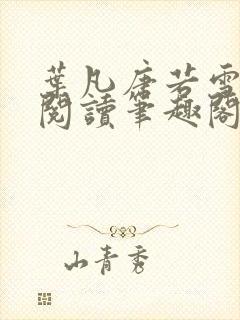 葉凡唐若雪
閱讀筆趣閣
山青秀